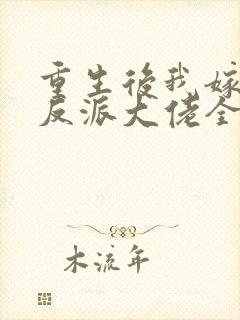 重生後我嫁
反派大佬全
木流年